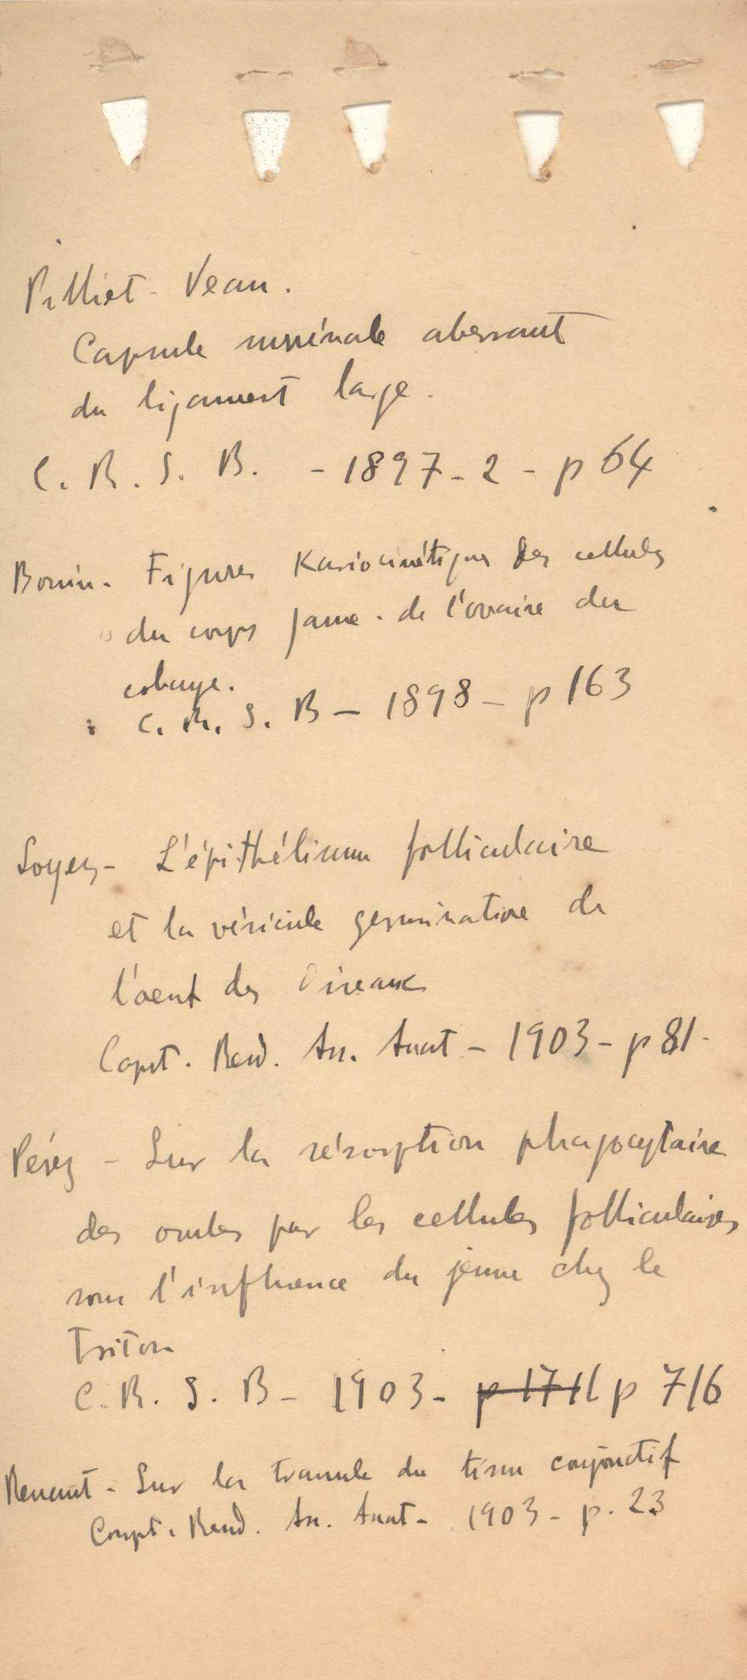 Pilliet - Veau.
Capsule surrénale aberrant
du ligament large.
C. R. S. B. - 1897 - 2 - p 64
Bouin - Figures Kariocinétiques des cellules
du corps jaune - de l'ovaire du
cobaye.
C. R. S. B - 1898 - p 163
Loyez - L'épithélium folliculaire
et la vésicule germinative de
l'oeuf des Oiseaux
Compt. Rend. An. Anat - 1903 - p 81 -
Pérez - Sur la résorption phagocytaire
des ovules par les cellules folliculaires
sous l'influence du jeune chez le
Triton
C. R. S. B - 1903 - p 1711 p 716
Renaut - Sur la tramule du tissu conjonctif
Compt. Rend. An. Anat - 1903 - p. 23